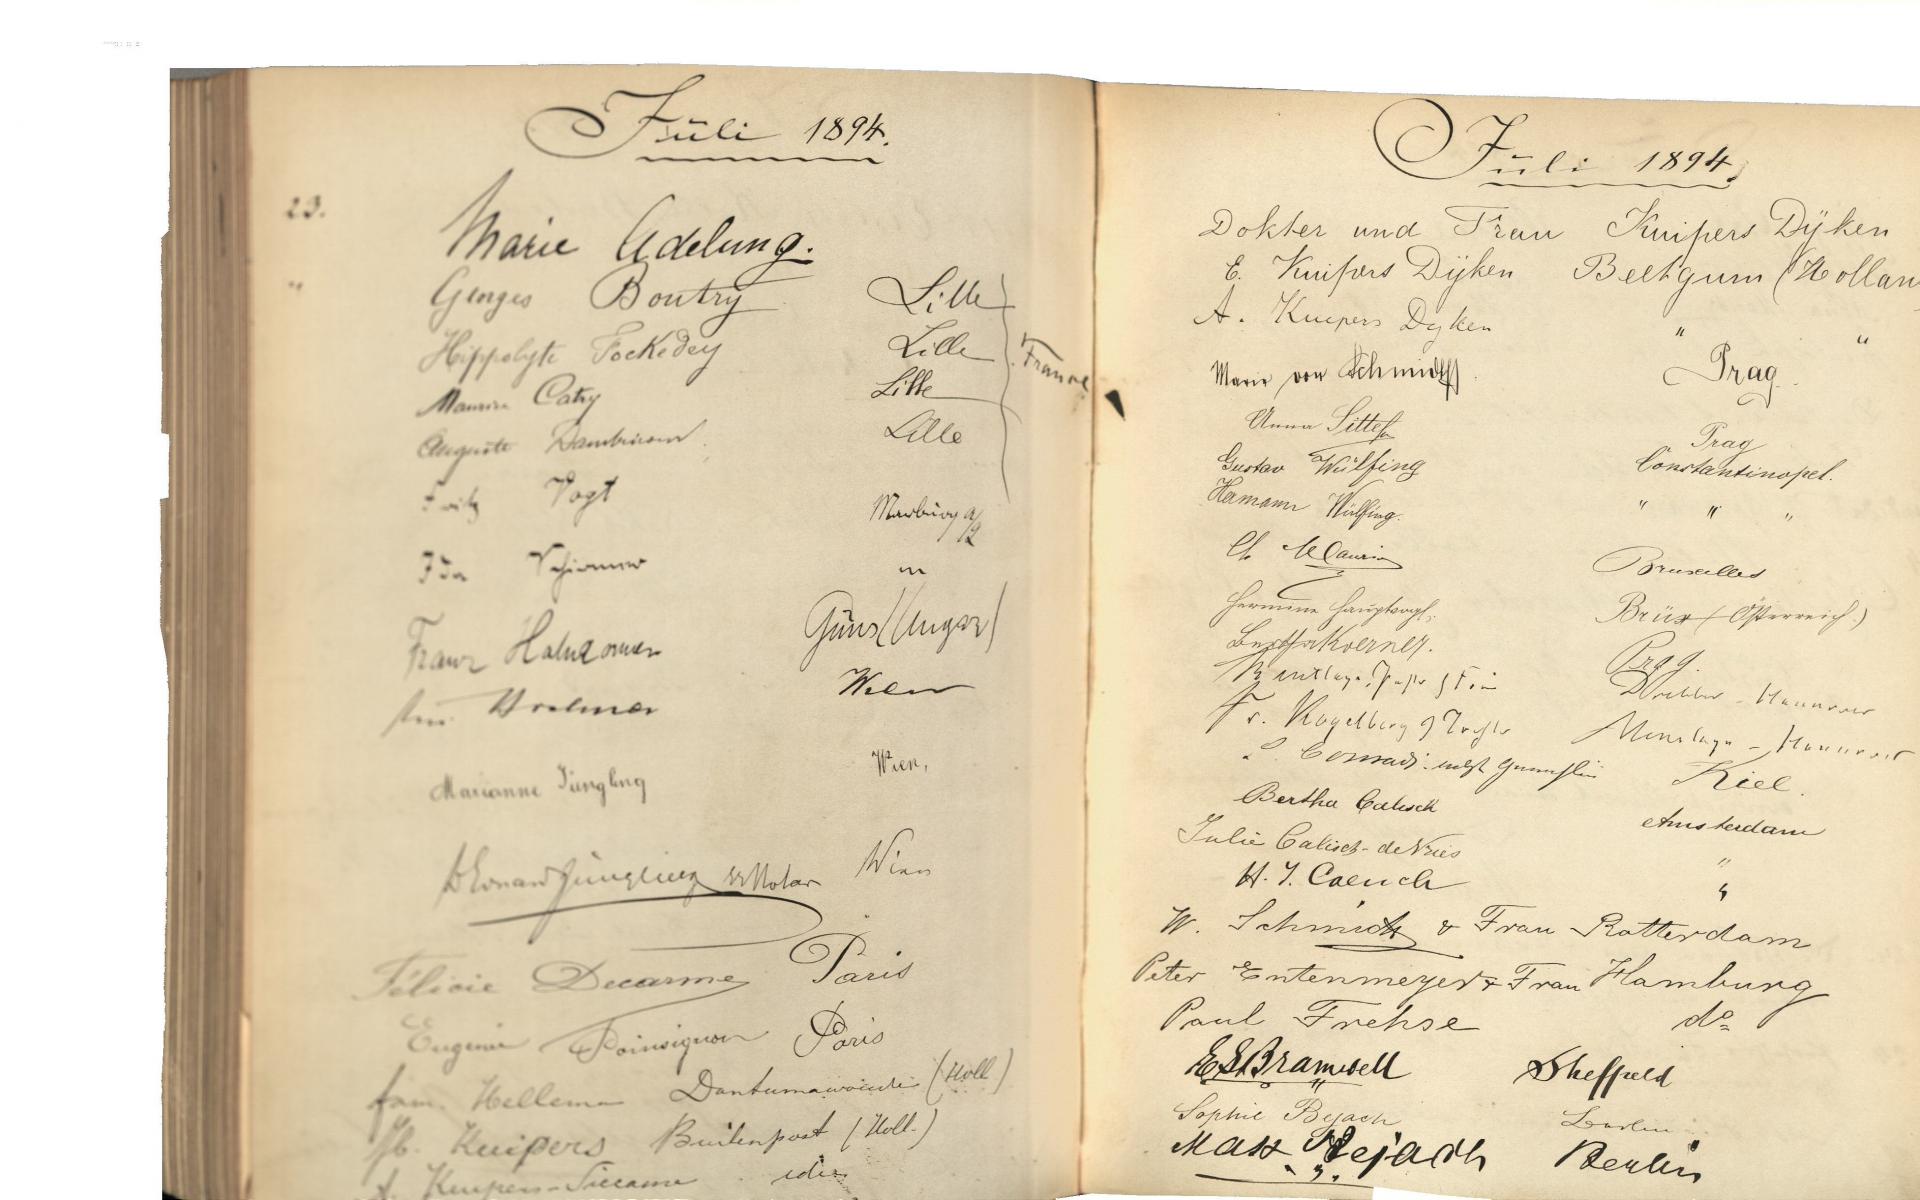 Jüli 1894.
23. Marie Adelung.
" Georges Boutry Lille
Hippolyte Fockedey Lille France
Maurice Catry Lille
Auguste Lille
Fritz Vogt Marburg a/L
Ida Schirmer "
Franz Güns (Ungar)
Wien
Marianne Jüngling Wien,
Jüngling Wien
Félicie Decarme Paris
Eugenie Poinsignon Paris
fam. Hellema Dantumawoude (Holl)
Kuipers Buitenpost (Holl.)
A. Kuipers-Siccama idem
Jüli 1894.
Dokter und Frau Kuipers Dÿken
E. Kuipers Dÿken Beetgum (Hollan
A. Kuipers Dyken " "
Marie von Schmidt Prag.
Anna Prag
Gustav Wülfing Constantinopel.
Hermann Wülfing. " " "
Bruxelles
Hermine Hauptvogl. Brüx (Österreich.)
Bertha Koerner. Prag.
Hannover
Fr. Kogelberg Menslage - Hannover
Conradi Kiel.
Bertha Calisch Amsterdam
Julie Calisch-de Vries "
H. J. Calisch "
W. Schmidt & Frau Rotterdam
Peter Entenmeyer & Frau Hamburg
Paul Frehse do
E S Bramwell Sheffield
Sophie Bejach Berlin
Max Bejach Berlin